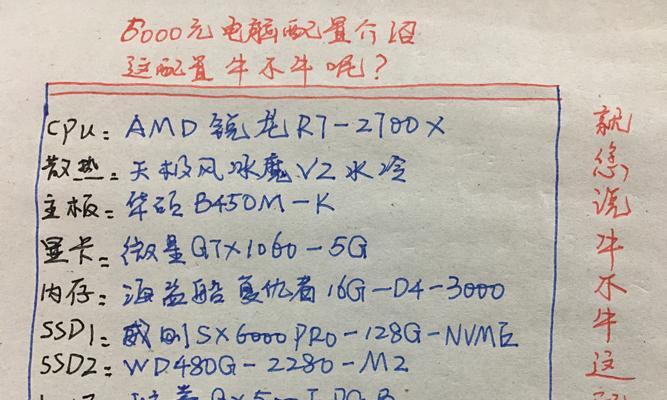 6000元电脑配置介绍
这配置牛不牛呢?
CPU: AMD 锐龙R7-2700X
散热: 天极风冰魔V2水冷
主板: 华硕B450M-K
显卡: 微星GTX1060-5G
内存: 海盗船复仇者16G-D4-3000
SSD1: 威刚SX6000PRO-128G-NVME
SSD2: WD480G-2280-M2
就
您
说
牛
不
牛
这